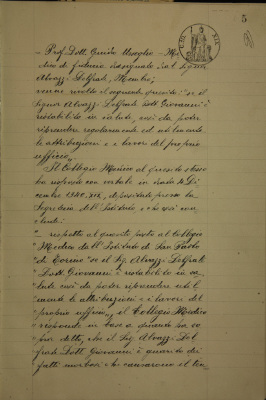 5
- Prof. Dott. Guido
di fiducia designato dal Signor
Alvazzi Delfrate, Membro;
venne rivolto il seguente quesito: "se il
Signor Alvazzi Delfrate Dott. Giovanni è
ristabilito in salute, così da poter
riprendere regolarmente ed utilmente
le attribuzioni e i lavori del proprio
ufficio".
Il Collegio Medico al quesito stesso
ha risposto con verbale in data
1940. XIX, depositato presso la
Segreteria dell'Istituto,
"- rispetto al quesito posto al Collegio
"Medico dall'Istituto di San Paolo
"di Torino "se il Sig. Alvazzi Delfrate
"Dott. Giovanni è ristabilito in sa-
"lute così da poter riprendere util-
"mente le attribuzioni e i lavori del
"proprio ufficio", il Collegio Medico
"risponde in base a quanto ha so-
"pra detto, che il Sig. Alvazzi Del-
"frate Dott. Giovanni è guarito dei
"fatti morbosi che